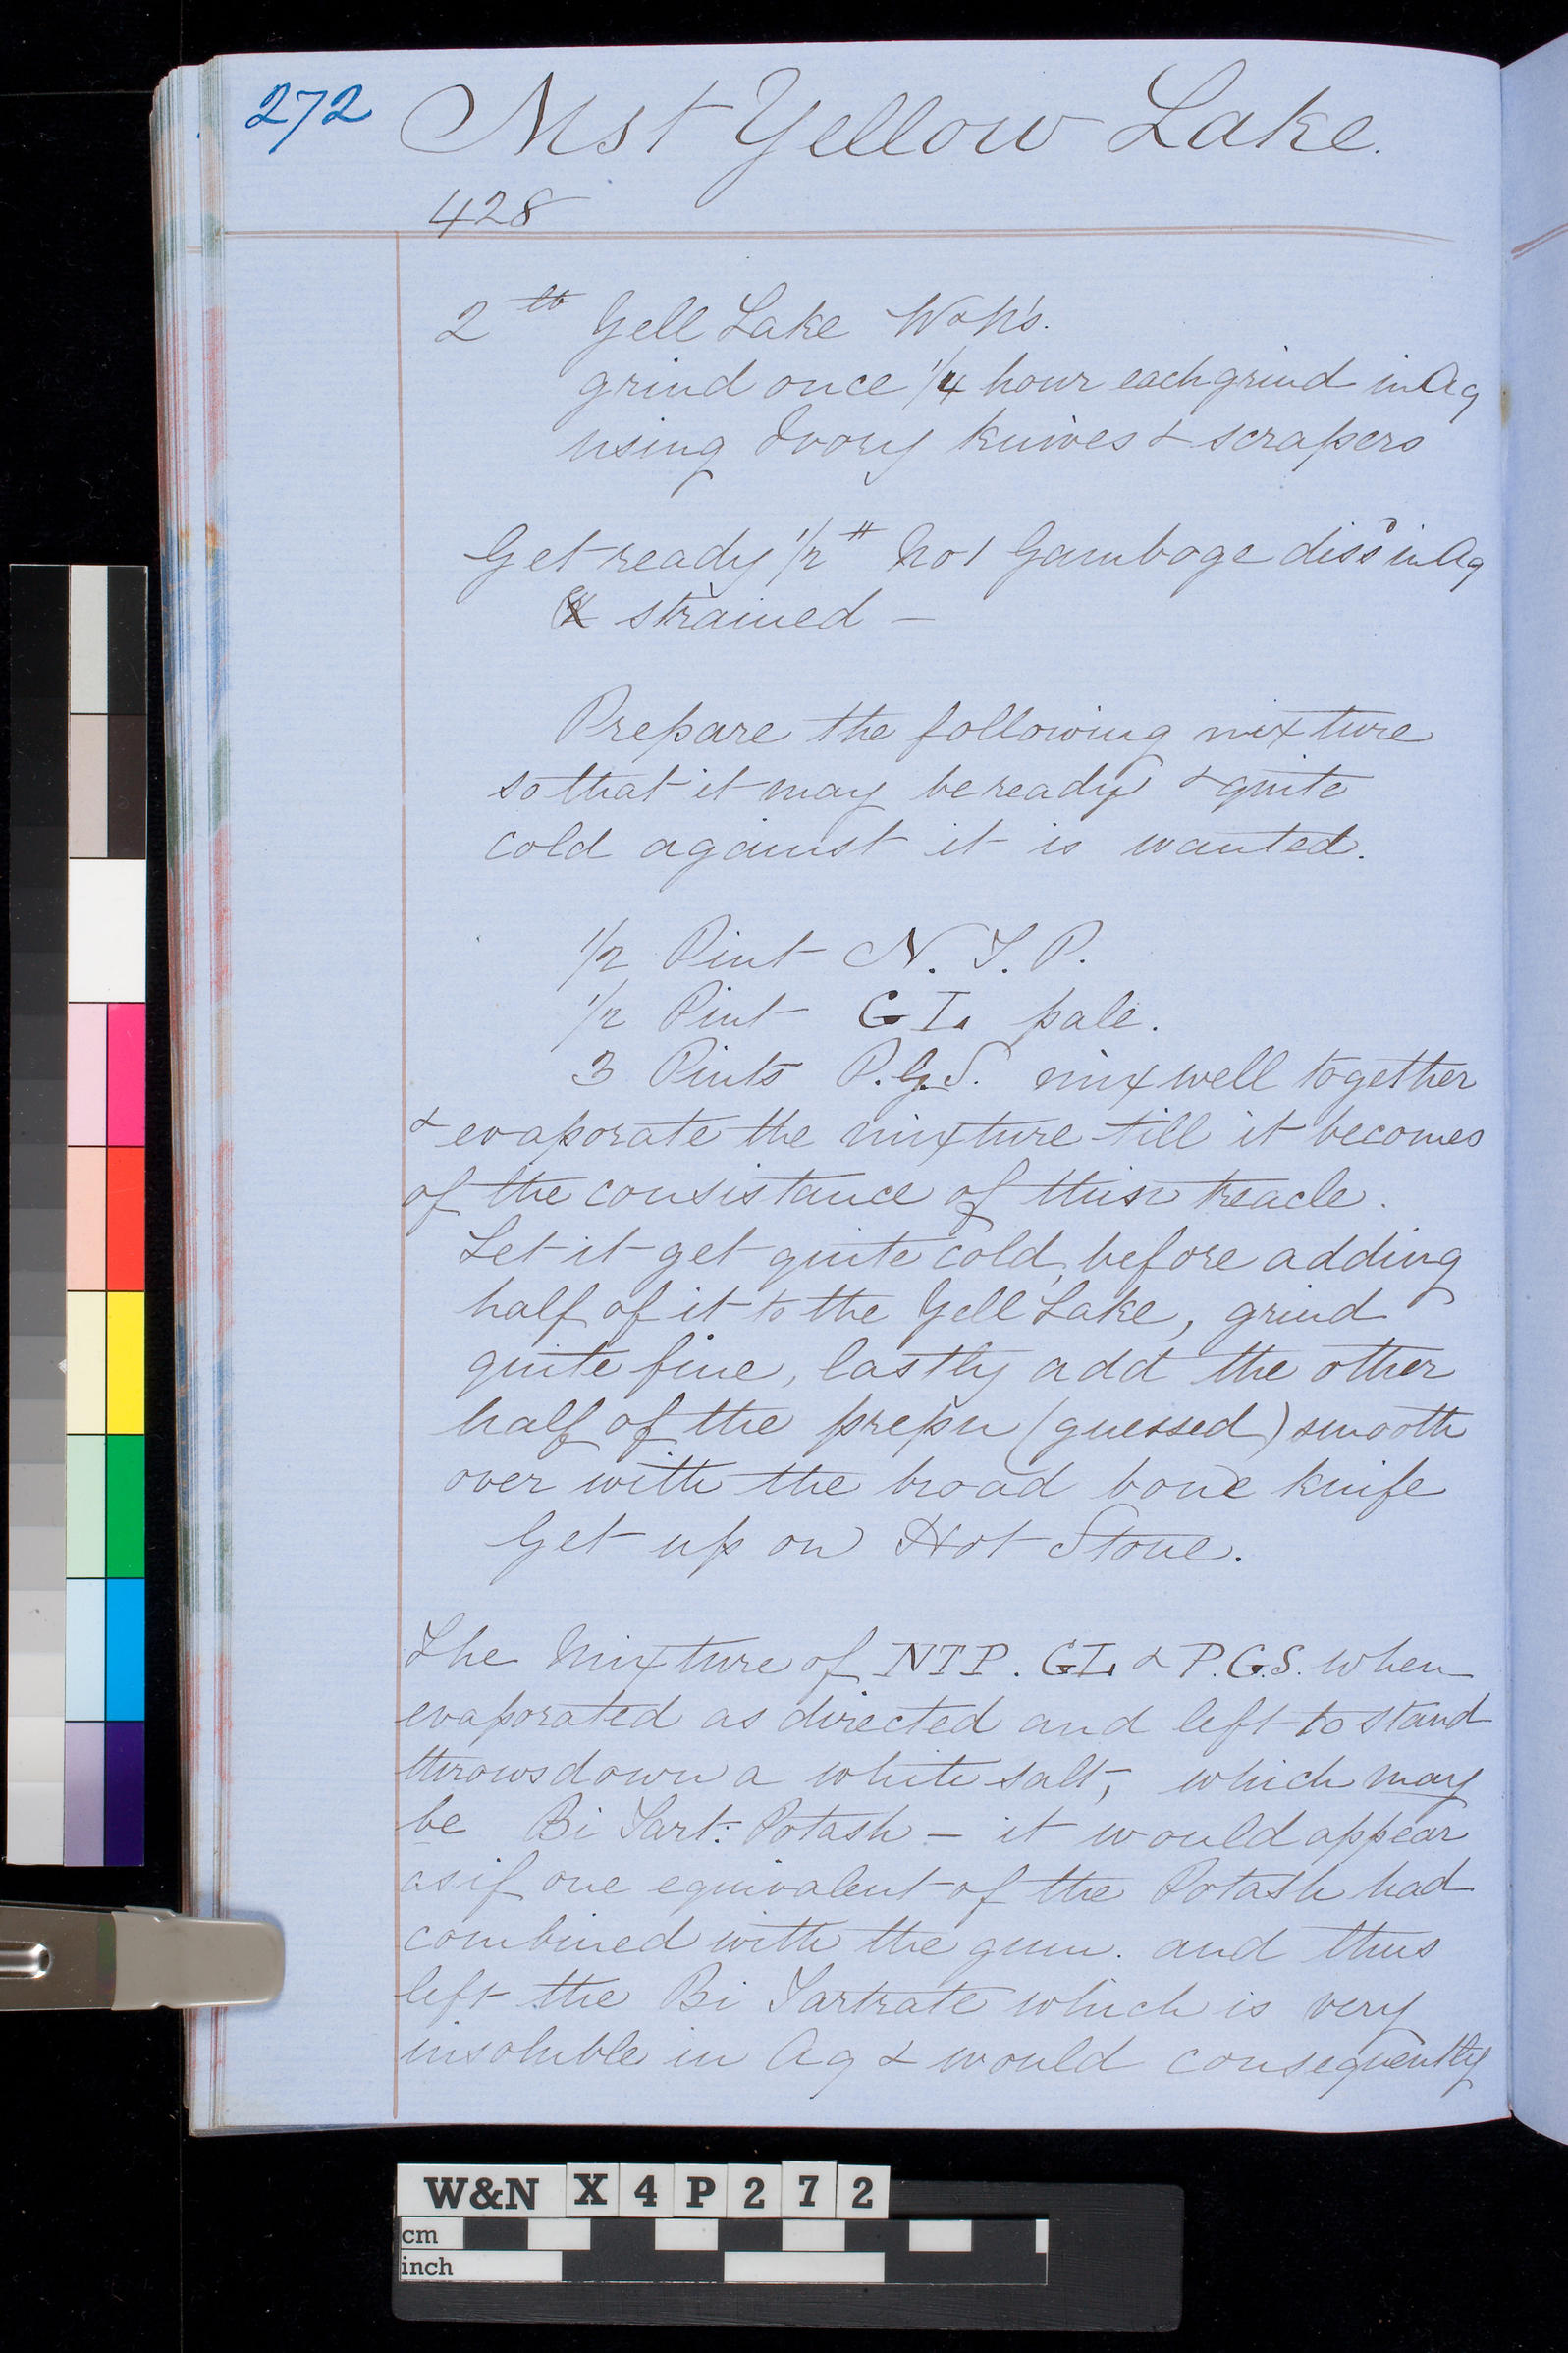 272 Mst Yellow Lake.
428
2 lb Yell Lake W&N's.
grind once 1/4 hour each grind in Aq
using Ivory knives & scrapers
Get ready 1/2 # No 1 Gamboge dissd in Aq
& strained —
Prepare the following mixture
so that it may be ready & quite
cold against it is wanted.
1/2 Pint N. T. P.
1/2 Pint G L. pale.
3 Pints P.G.S. mix well together
& evaporate the mixture till it becomes
of the consistance of thin treacle.
Let it get quite cold, before adding
half of it to the Yell Lake, grind
quite fine, lastly add the other
half of the prepn (guessed) smooth
over with the broad bone knife
Get up on Hot Stone.
The Mixture of NTP. GL & P.G.S. when
evaporated as directed and left to stand
throws down a white salt, which may
be Bi Tart: Potash — it would appear
as if one equivalent of the Potash had
combined with the gum. and thus
left the Bi Tartrate which is very
insoluble in Aq & would consequently
W&N X4P272
cm
inch